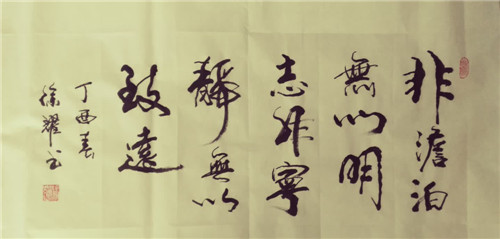 非澹泊
無以明
志非寧
靜無以
致遠
丁酉春
徐耀書